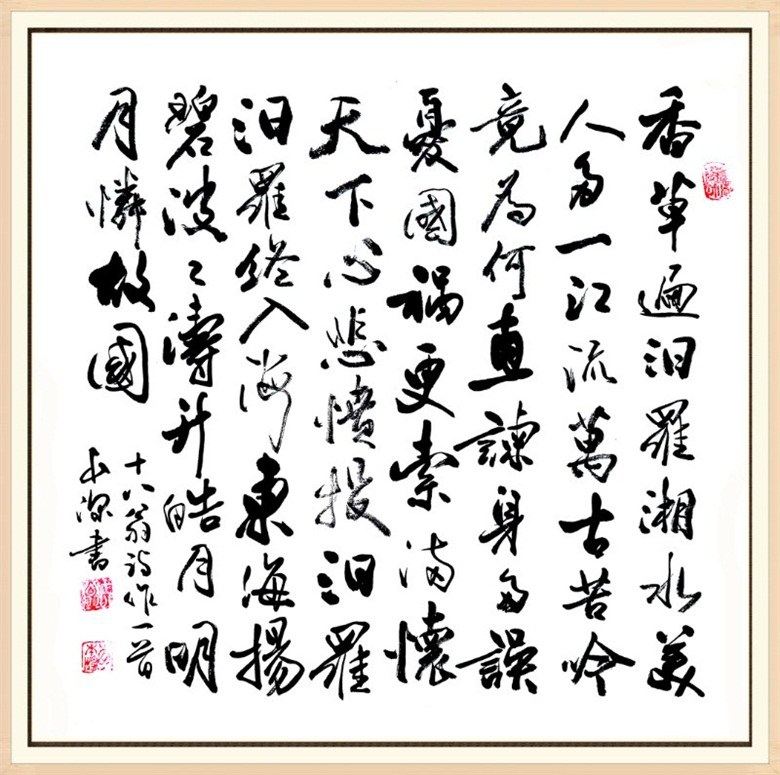 香草遍汨羅湘水美
人多一江流萬古苦吟
竟為何直諫身多誤
憂國禍更索滿懷
天下心悲憤投汨羅
汨羅終入海東海揚
碧波々濤升皓月明
月憐故國
十八翁詩作一首
深書